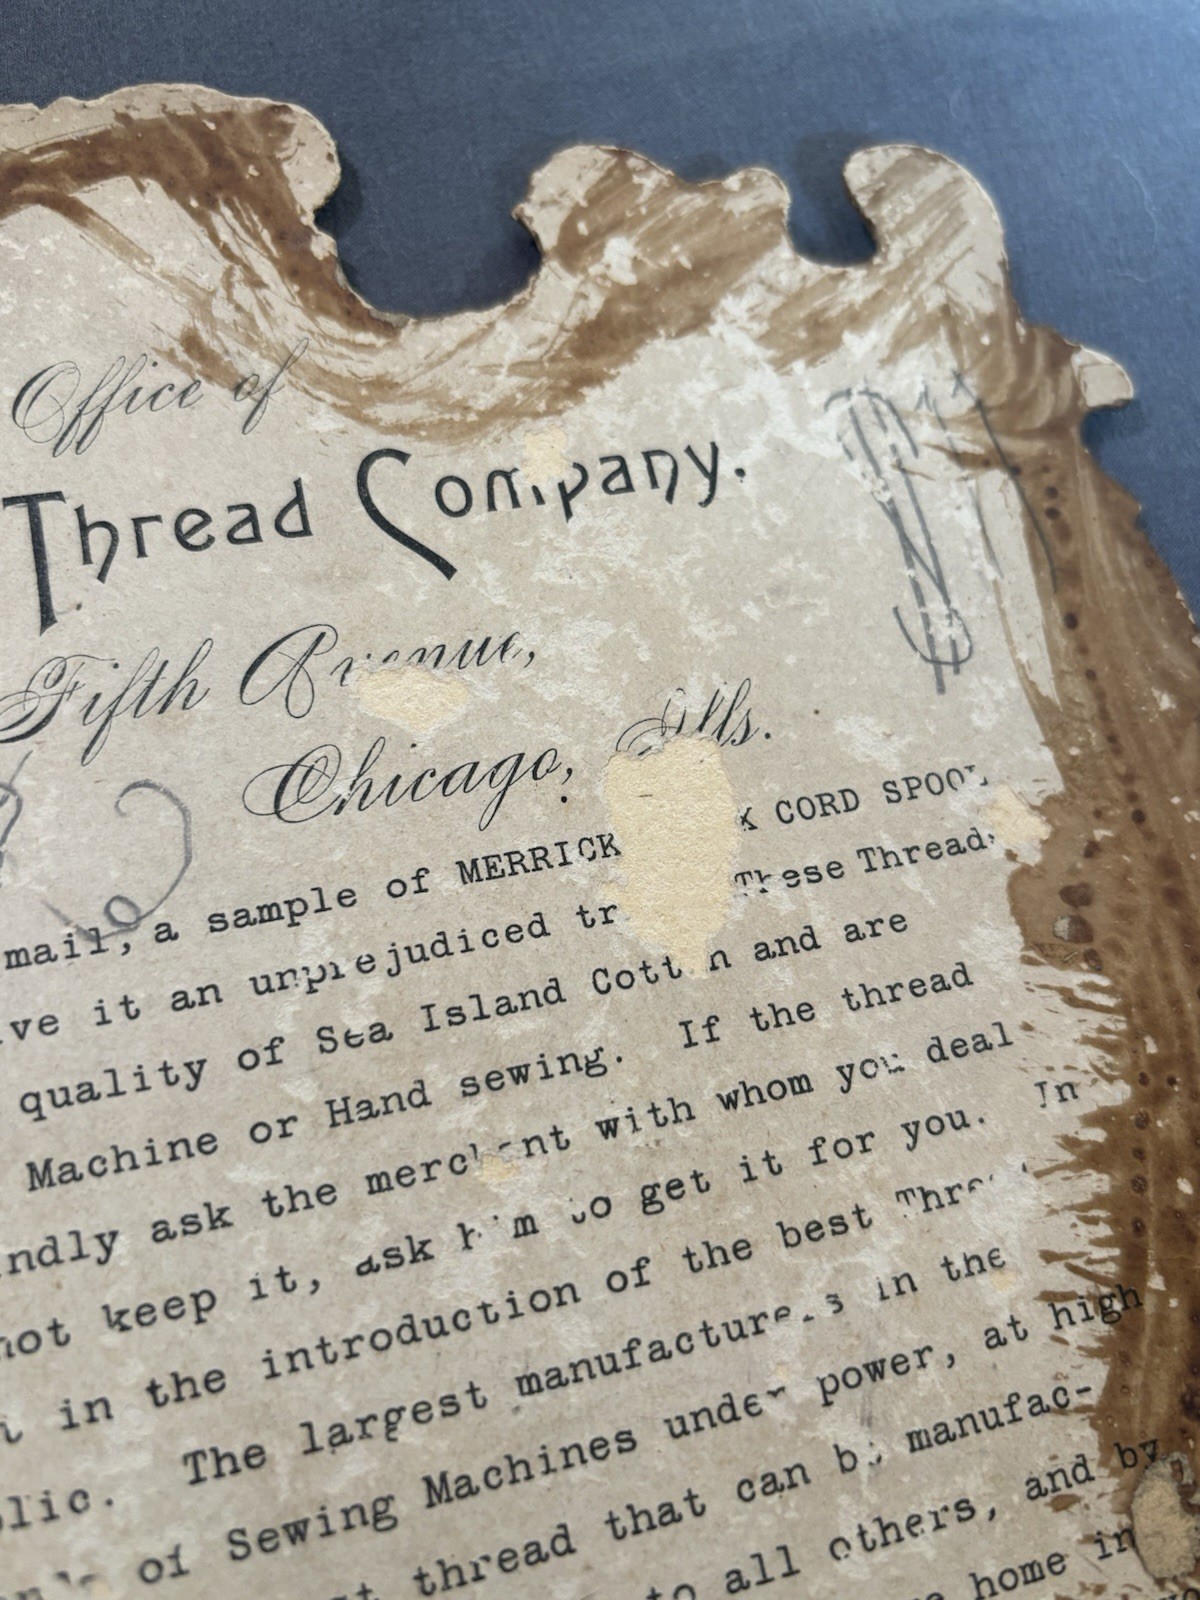 Office of
Thread Company.
Fifth Avenue,
Chicago, Ills.
mail, a sample of MERRICK CORD SPOOL
it an unprejudiced These Thread
quality of Sea Island Cotton and are
Machine or Hand sewing. If the thread
ask the merchant with whom you deal
not keep it, ask him to get it for you. In
in the introduction of the best Thread
The largest manufacturers in the
of Sewing Machines under power, at high
thread that can be manufac-
to all others, and by
home in